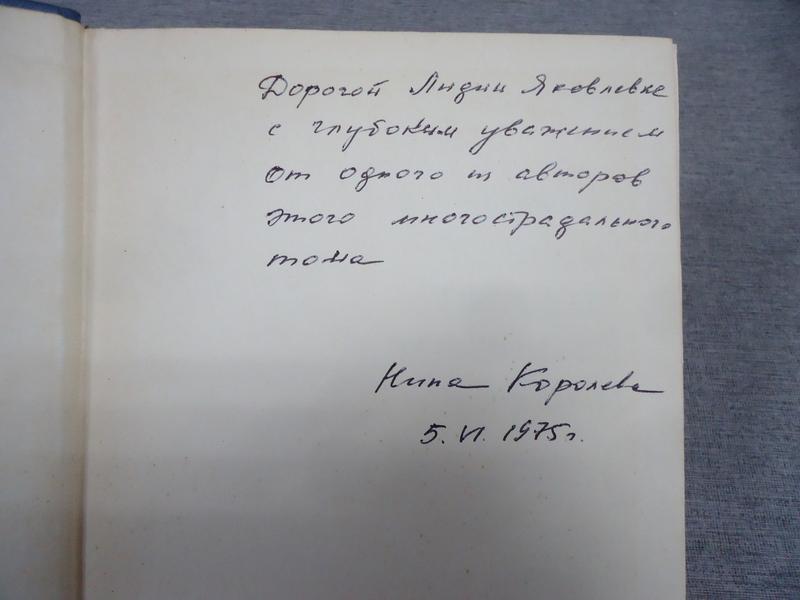 Дорогой Лидии Яковлевне
с глубоким уважением
от одного из авторов
этого многострадального
тома
Нина Королева
5. VI. 1975 г.